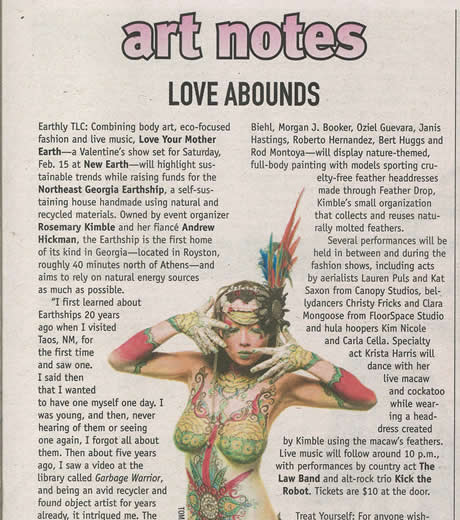 art notes
LOVE ABOUNDS
Earthly TLC: Combining body art, eco-focused
fashion and live music, Love Your Mother
Earth—a Valentine's show set for Saturday,
Feb. 15 at New Earth—will highlight sus-
tainable trends while raising funds for the
Northeast Georgia Earthship, a self-sus-
taining house handmade using natural and
recycled materials. Owned by event organizer
Rosemary Kimble and her fiancé Andrew
Hickman, the Earthship is the first home
of its kind in Georgia—located in Royston,
roughly 40 minutes north of Athens—and
aims to rely on natural energy sources
as much as possible.
"I first learned about
Earthships 20 years
ago when I visited
Taos, NM, for
the first time
and saw one.
I said then
that I wanted
to have one myself one day. I
was young, and then, never
hearing of them or seeing
one again, I forgot all about
them. Then about five years
ago, I saw a video at the
library called Garbage Warrior,
and being an avid recycler and
found object artist for years
already, it intrigued me. The
Biehl, Morgan J. Booker, Oziel Guevara, Janis
Hastings, Roberto Hernandez, Bert Huggs and
Rod Montoya—will display nature-themed,
full-body painting with models sporting cru-
elty-free feather headdresses
made through Feather Drop,
Kimble's small organization
that collects and reuses natu-
rally molted feathers.
Several performances will be
held in between and during the
fashion shows, including acts
by aerialists Lauren Puls and Kat
Saxon from Canopy Studios, bel-
lydancers Christy Fricks and Clara
Mongoose from FloorSpace Studio
and hula hoopers Kim Nicole
and Carla Cella. Specialty
act Krista Harris will
dance with her
live macaw
and cockatoo
while wear-
ing a head-
dress created
by Kimble using the macaw's feathers.
Live music will follow around 10 p.m.,
with performances by country act The
Law Band and alt-rock trio Kick the
Robot. Tickets are $10 at the door.
Treat Yourself: For anyone wish-
TOM